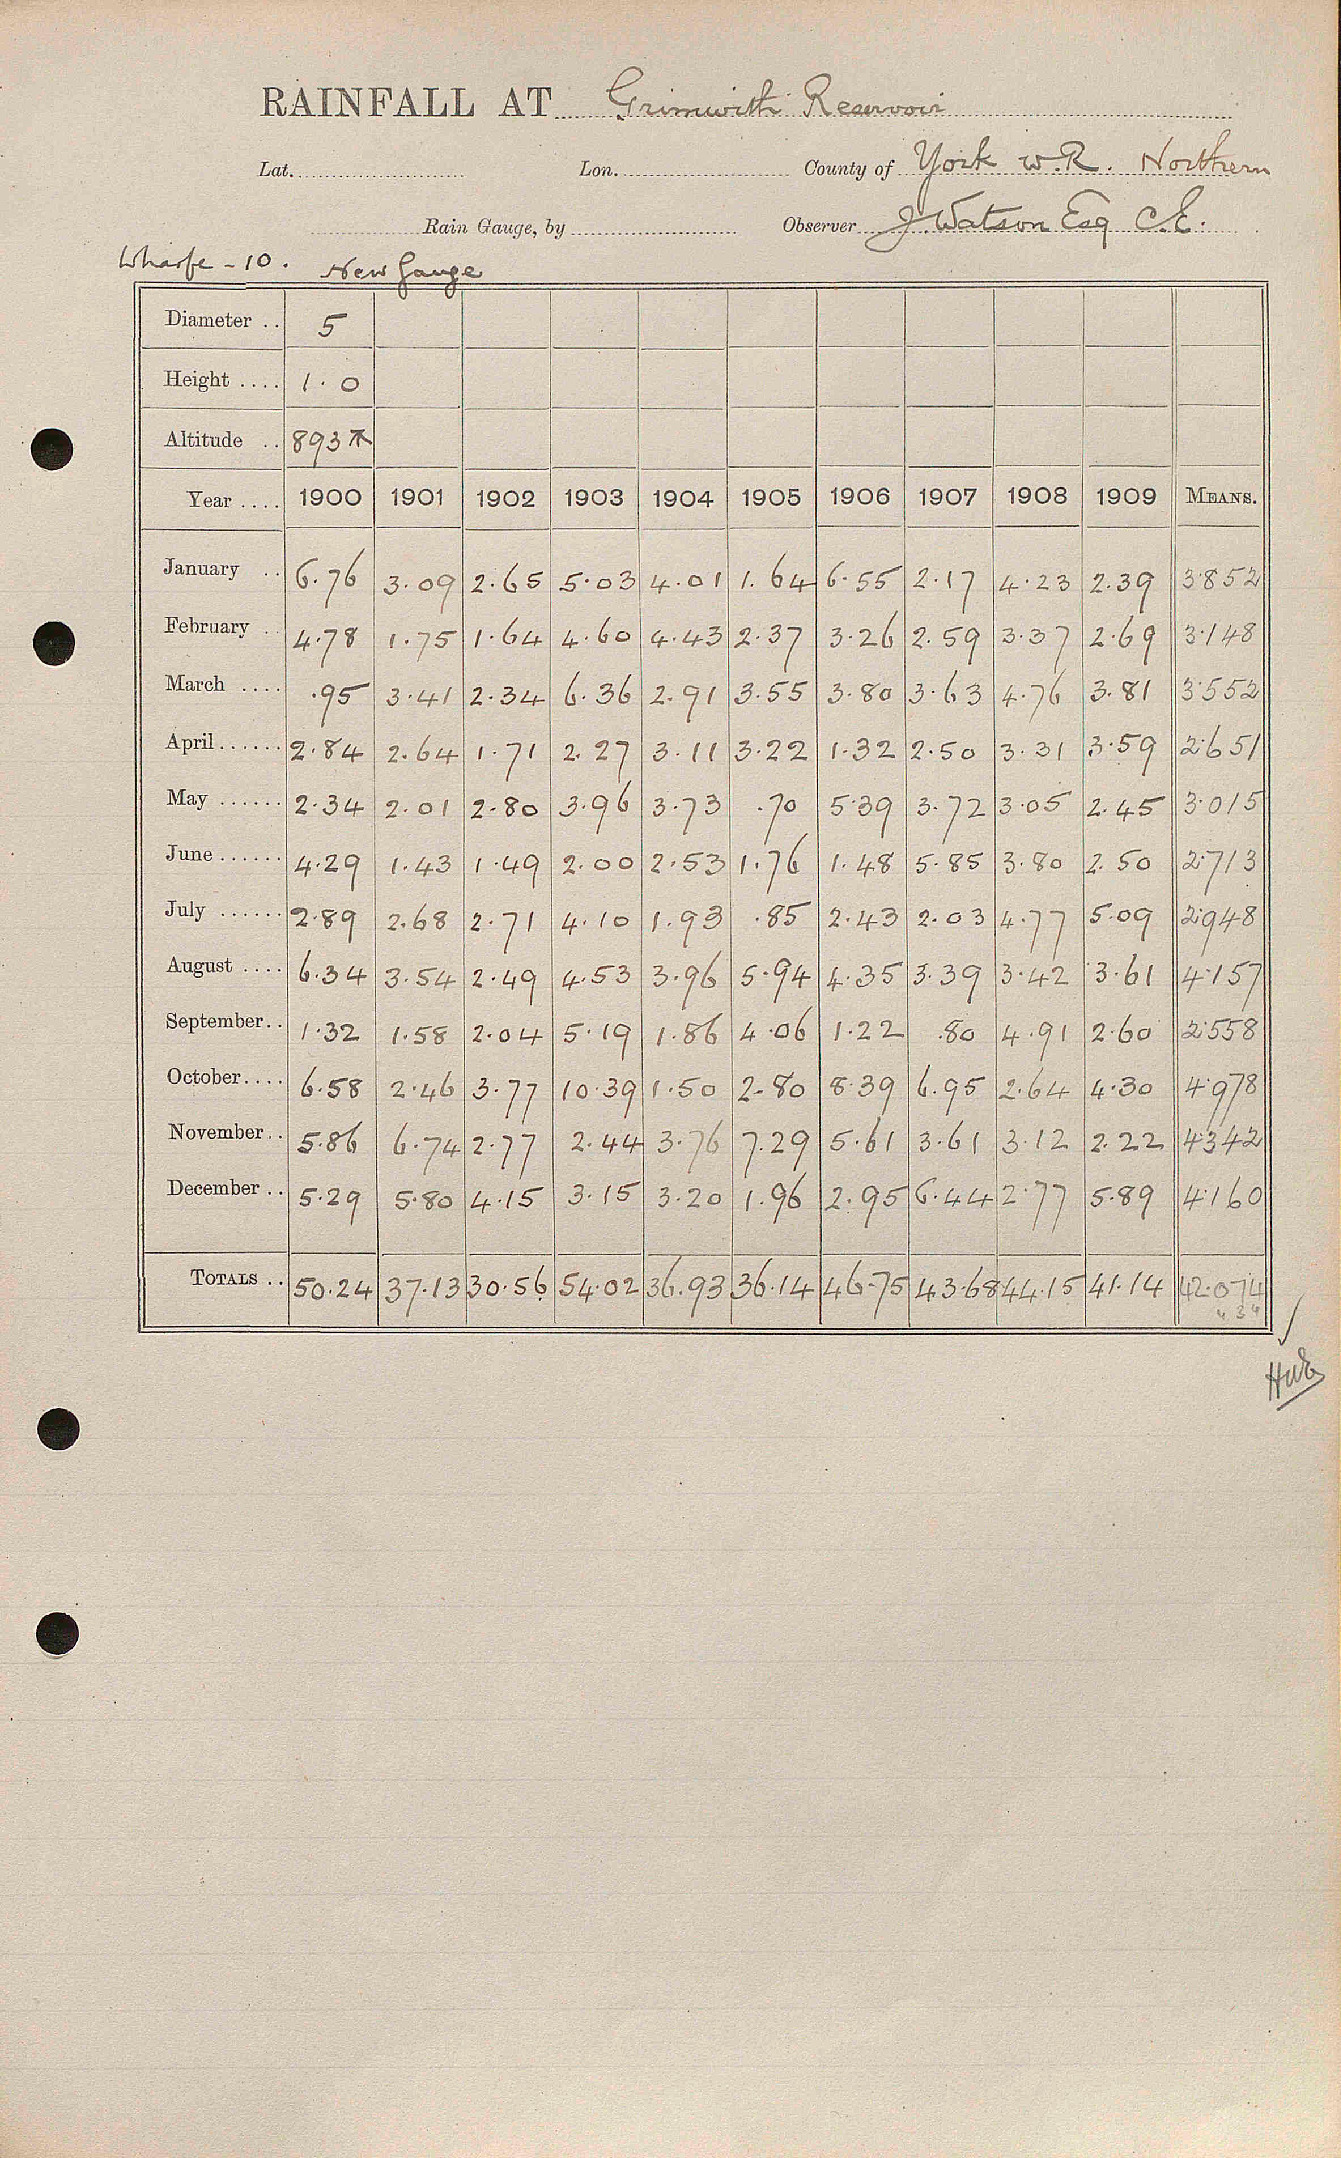 RAINFALL AT Grimwith Reservoir
Lat. Lon. County of York W.R. Northern
Rain Gauge, by Observer J. Watson Esq C.E.
Wharfe - 10. New Gauge
Diameter .. 5
Height .... 1.0
Altitude .. 893
Year .... 1900 1901 1902 1903 1904 1905 1906 1907 1908 1909 MEANS.
January .. 6.76 3.09 2.65 5.03 4.01 1.64 6.55 2.17 4.23 2.39 3.852
February .. 4.78 1.75 1.64 4.60 4.43 2.37 3.26 2.59 3.37 2.69 3.148
March .... .95 3.41 2.34 6.36 2.91 3.55 3.80 3.63 4.76 3.81 3.552
April...... 2.84 2.64 1.71 2.27 3.11 3.22 1.32 2.50 3.31 3.59 2.651
May ...... 2.34 2.01 2.80 3.96 3.73 .70 5.39 3.72 3.05 2.45 3.015
June ...... 4.29 1.43 1.49 2.00 2.53 1.76 1.48 5.85 3.80 2.50 2.713
July ...... 2.89 2.68 2.71 4.10 1.93 .85 2.43 2.03 4.77 5.09 2.948
August .... 6.34 3.54 2.49 4.53 3.96 5.94 4.35 3.39 3.42 3.61 4.157
September.. 1.32 1.58 2.04 5.19 1.86 4.06 1.22 .80 4.91 2.60 2.558
October.... 6.58 2.46 3.77 10.39 1.50 2.80 8.39 6.95 2.64 4.30 4.978
November.. 5.86 6.74 2.77 2.44 3.76 7.29 5.61 3.61 3.12 2.22 4.342
December .. 5.29 5.80 4.15 3.15 3.20 1.96 2.95 6.44 2.77 5.89 4.160
TOTALS .. 50.24 37.13 30.56 54.02 36.93 36.14 46.75 43.68 44.15 41.14 42.074